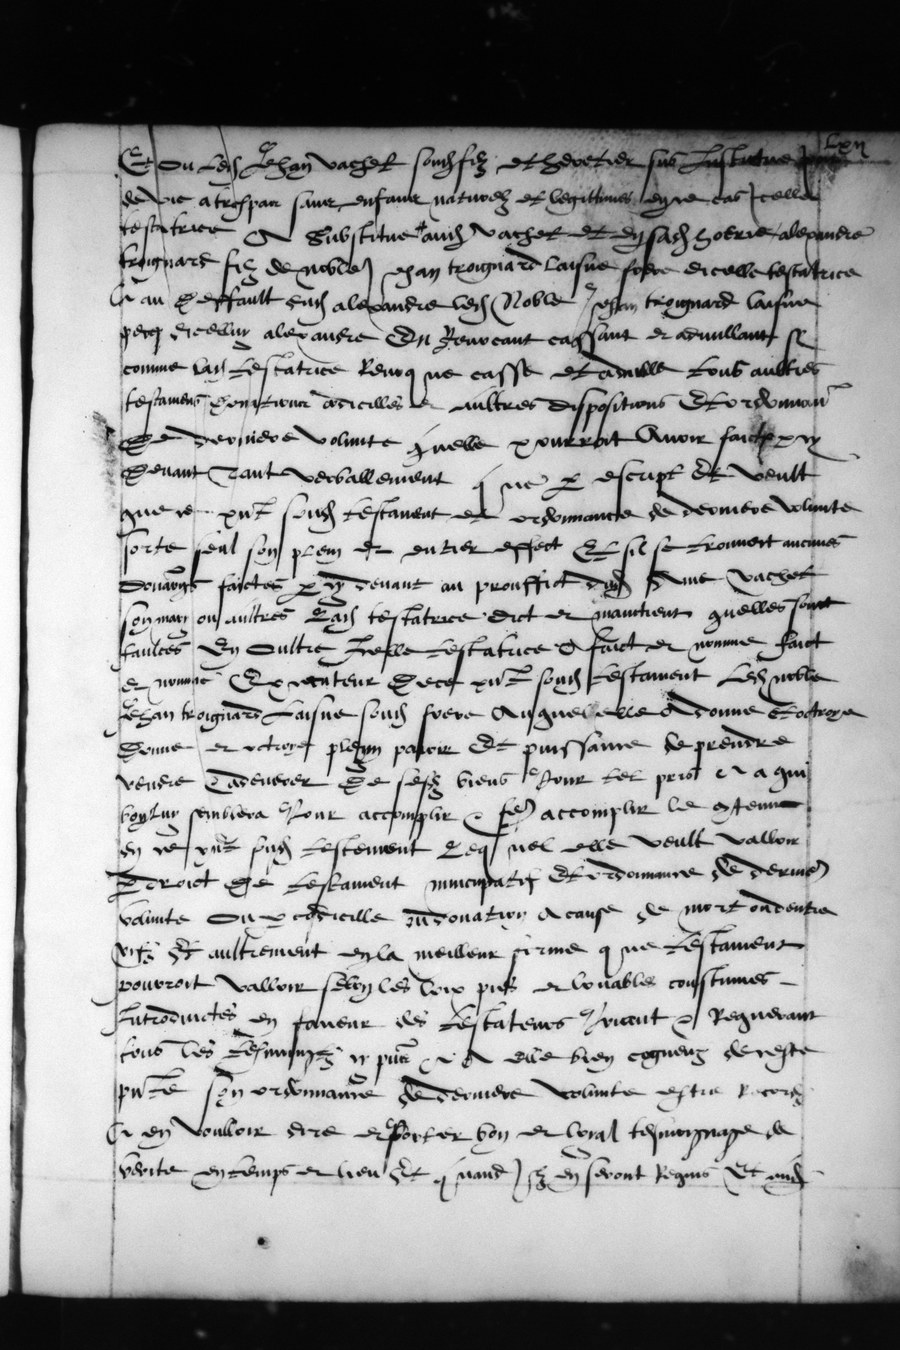 lxii
Et ou led Jehan vachet soud filz et heretier sus Institue
de vie a trespas sans enfans naturelz et legittimes en ce cas Icelle
testatrice A Substitue aud vachet et en sad hoerie alexandre
troignard filz de noble Jehan troignard laisne frere dicelle testatrice
Et au deffault dud alexandre led Noble Jehan troignard laisne
pere dicelluy alexandre En Revocant cassant et adnullant Si
comme lad testatrice Revoque casse et adnulle tous aultres
testamens donations codicilles et aultres dispositions Et ordonnan
De derniere volunte quelle pourroit Avoir faict par cy
devant Tant verballement que par escript Et veult
que ce pnt soud testament et ordonnance de derniere volunte
sorte seul son plein et entier effect Et sil se trouvoit aucunes
donations faictes par cy devant au prouffict dud Vachet
son mary ou aultres Lad testatrice dict et maintient quelles sont
faulces En Oultre Icelle testatrice A faict et nomme faict
et nomme Executeur de ce pnt soud testament led noble
Jehan troignard Laisne soud frere Auquel elle A donne et octroye
donne et octroye plein pouoir Et puissance de prendre
vendre de sesd biens Pour tel pris Et a qui
bon luy semblera Pour accomplir et fere accomplir le contenu
en ce pnt sond testament Lequel elle veult valloir
par droict de testament nuncupatif Et ordonnance de derniere
volunte Ou par codicille ou donation A cause de mort ou dentre
vifz Et aultrement en la meilleur forme que testament
pouvroit valloir selon les loix pies et louables coustumes
Introductes en faveur des testateurs Priant et Requerant
tous les tesmoingtz cy pns et A elle bien cogneuz de ceste
pnte son ordonnance de derniere volunte estre Recordz
Et en vouloir dire et porter bon et loyal tesmoignage de
verite en temps et lieu Et quand Ilz en seront Requis Et aud